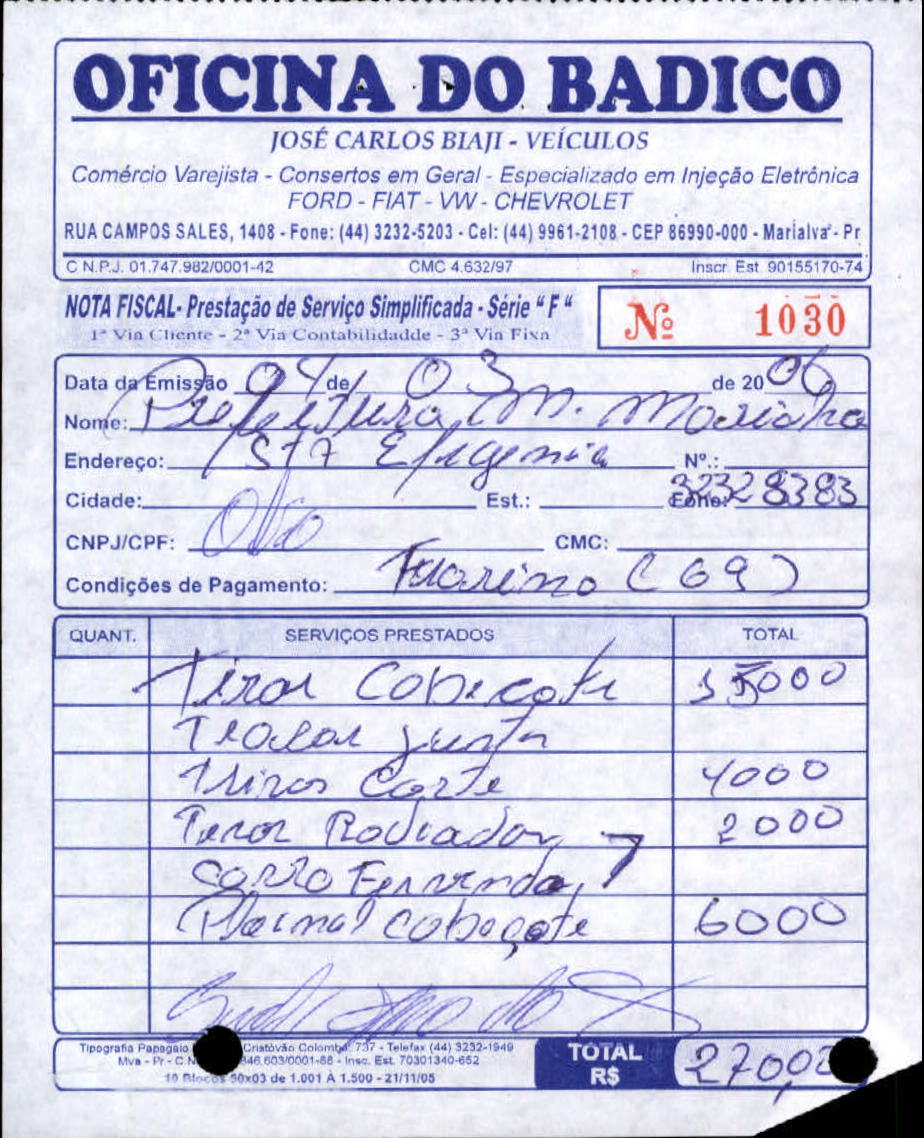 OFICINA DO BADICO
JOSÉ CARLOS BIAJI - VEÍCULOS
Comércio Varejista - Consertos em Geral - Especializado em Injeção Eletrônica
FORD - FIAT - VW - CHEVROLET
RUA CAMPOS SALES, 1408 - Fone: (44) 3232-5203 - Cel: (44) 9961-2108 - CEP 86990-000 - Marialva - Pr
C N.P.J. 01.747.982/0001-42 CMC 4.632/97 Inscr. Est. 90155170-74
NOTA FISCAL- Prestação de Serviço Simplificada - Série " F "
1ª Via Cliente - 2ª Via Contabilidadde - 3ª Via Fixa
Nº 1030
Data da Emissão 04 de 03 de 2006
Nome: Prefeitura M. Marialva
Endereço: Sta Efigenia Nº.:
Cidade: Est.: Fone: 32328383
CNPJ/CPF: CMC:
Condições de Pagamento: Fiorino (69)
QUANT. SERVIÇOS PRESTADOS TOTAL
Tirar Cabeçote 15000
Trocar junta
Tirar Carte 4000
Tirar Radiador 2000
Carro Fernanda
Plaina Cabeçote 6000
Tipografia Papagaio Cristóvão Colombo, 737 - Telefax (44) 3232-1949
Mva - Pr - C.N 946.603/0001-88 - Insc. Est. 70301340-652
10 Blocos 50x03 de 1.001 À 1.500 - 21/11/05
TOTAL R$ 270,00